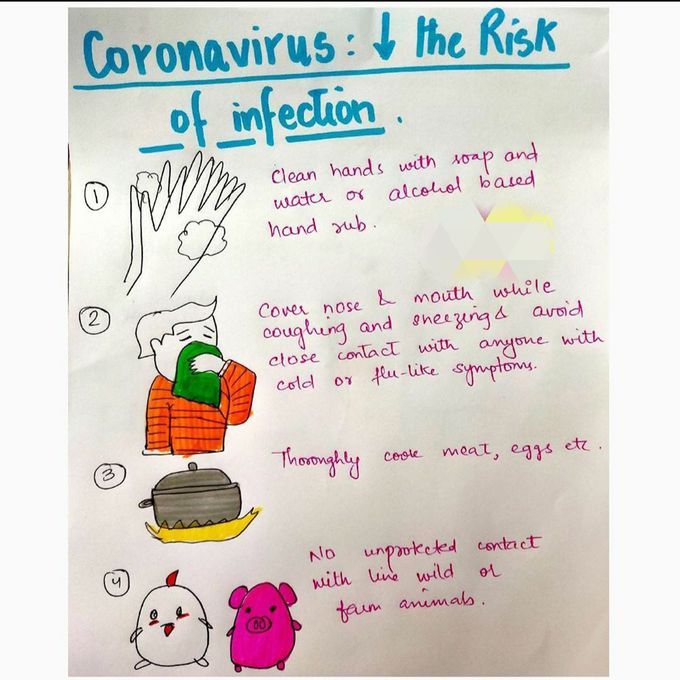 Coronavirus: ↓ the Risk
of infection.
1
Clean hands with soap and
water or alcohol based
hand rub.
2
Cover nose & mouth while
coughing and sneezing & avoid
close contact with anyone with
cold or flu-like symptoms.
3
Thoroughly cook meat, eggs etc.
4
No unprotected contact
with live wild or
farm animals.